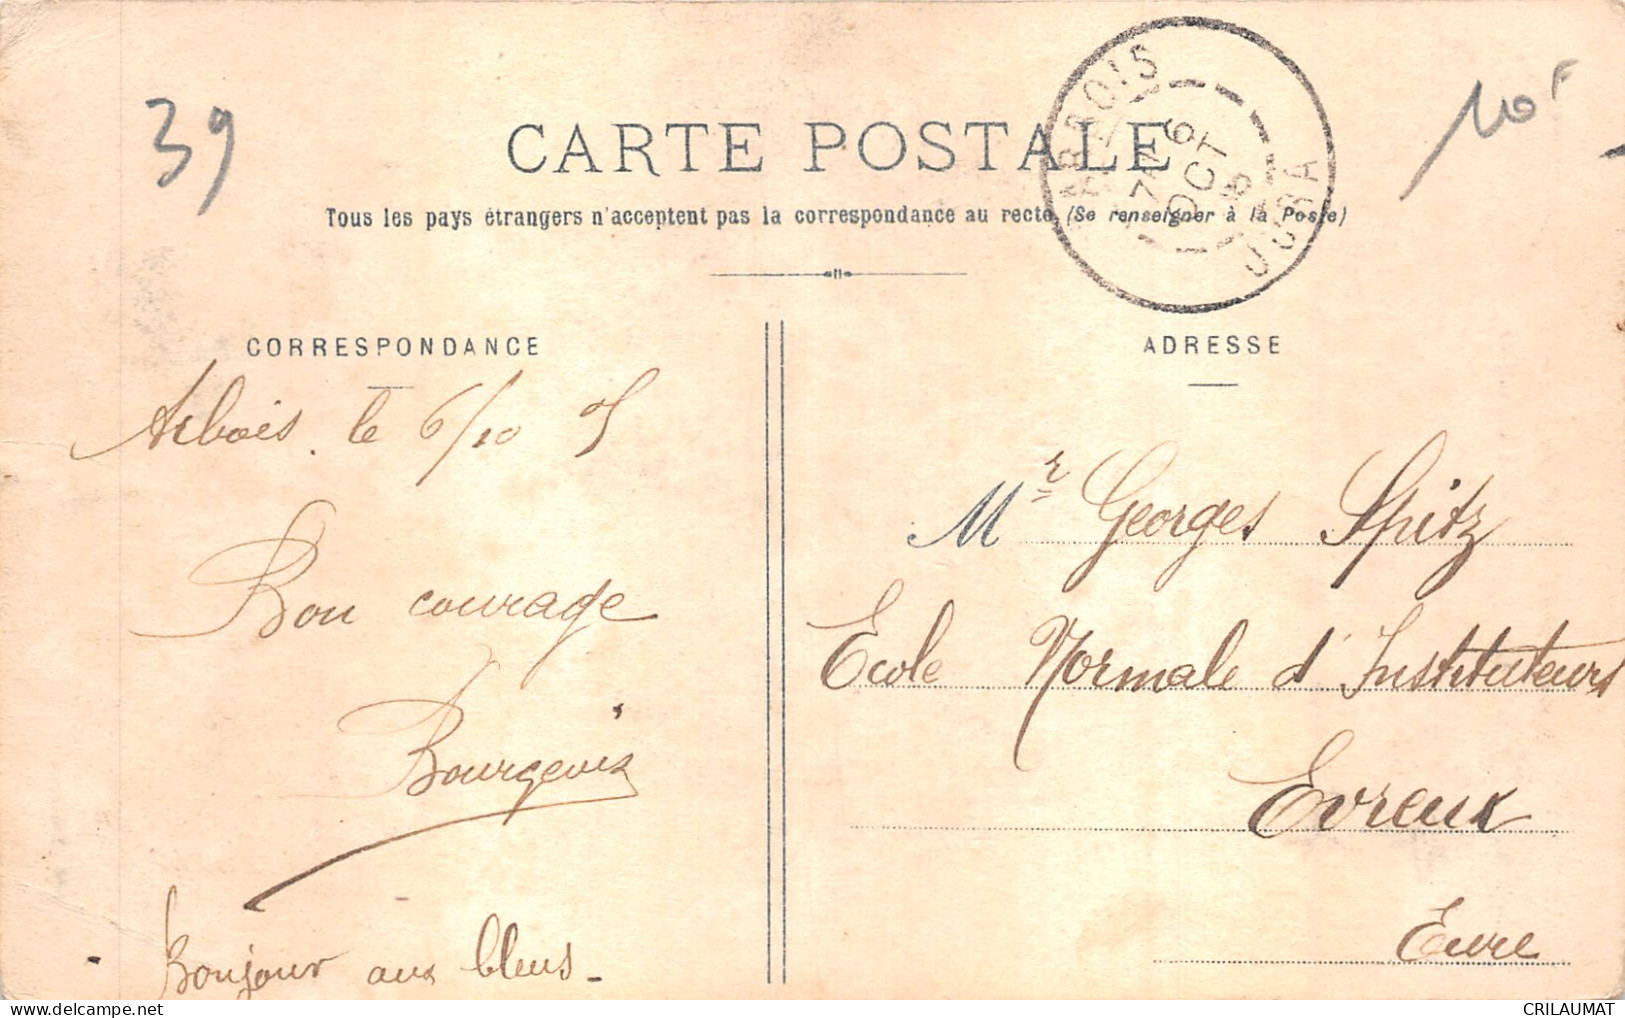 39
10F
CARTE POSTALE
Tous les pays étrangers n'acceptent pas la correspondance au recto. (Se renseigner à la Poste)
ARBOIS
6
OCT
JURA
CORRESPONDANCE
Arbois. le 6/10 05
Bon courage
Bourgeois
Bonjour aux bleus -
ADRESSE
Mr Georges Spitz
Ecole Normale d'Instituteurs
Evreux
Eure
CRILAUMAT